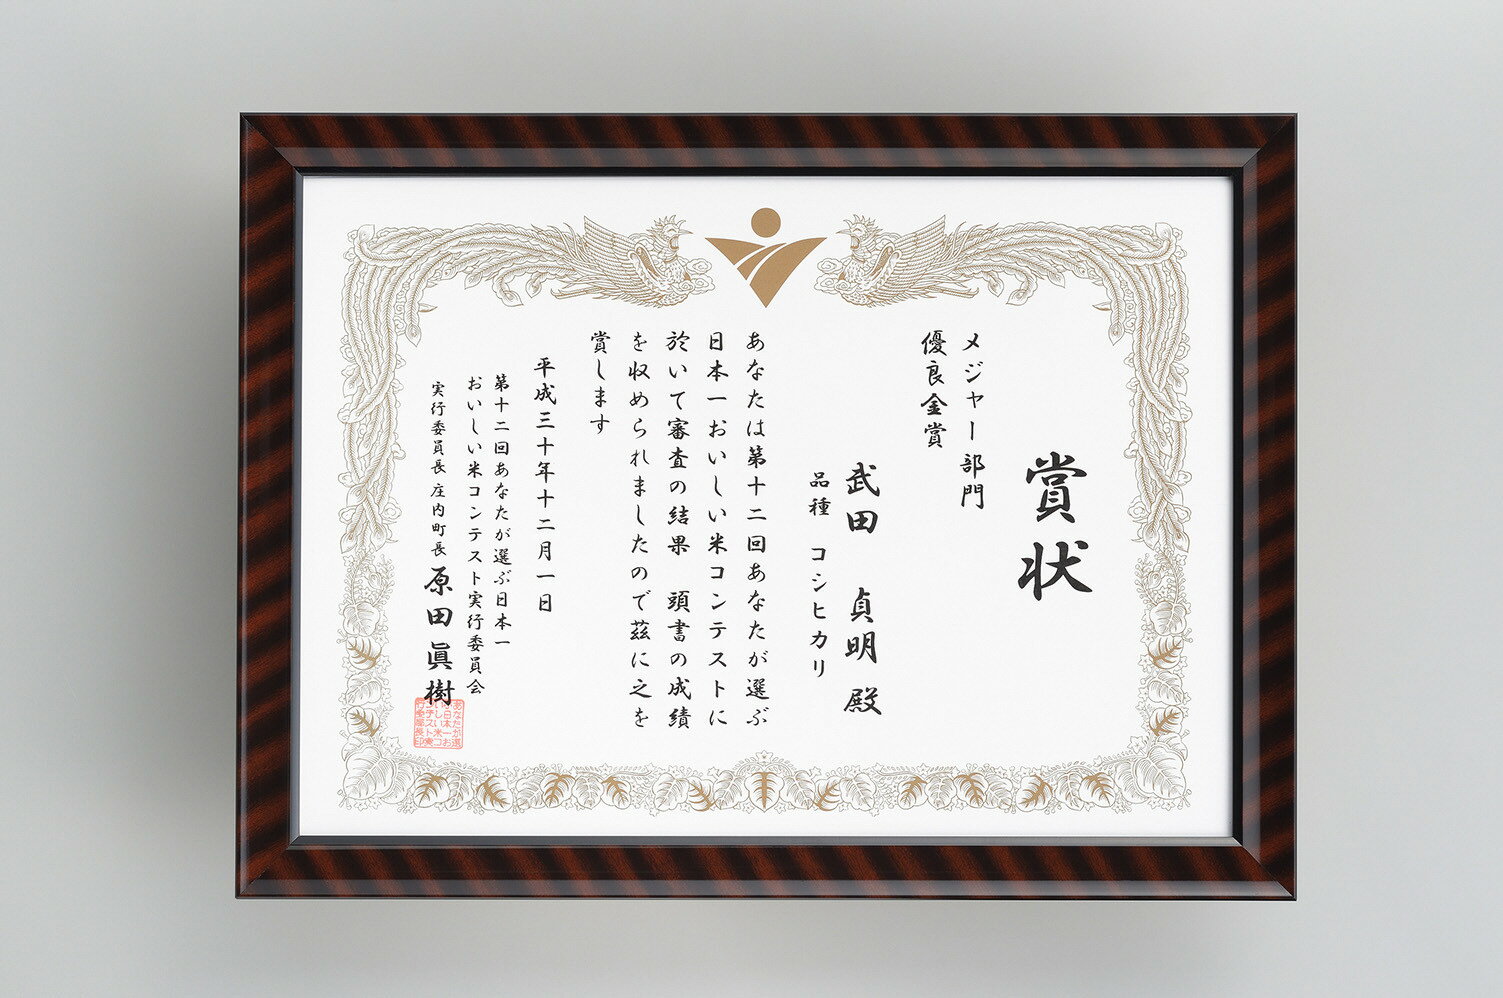 賞状
メジャー部門
優良金賞
武田 貞明 殿
品種 コシヒカリ
あなたは第十二回あなたが選ぶ
日本一おいしい米コンテストに
於いて審査の結果 頭書の成績
を収められましたので茲に之を
賞します
平成三十年十二月一日
第十二回あなたが選ぶ日本一
おいしい米コンテスト実行委員会
実行委員長 庄内町長 原田眞樹